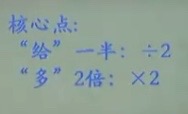 核心点:
“给” 一半: ÷2
“多” 2倍: ×2